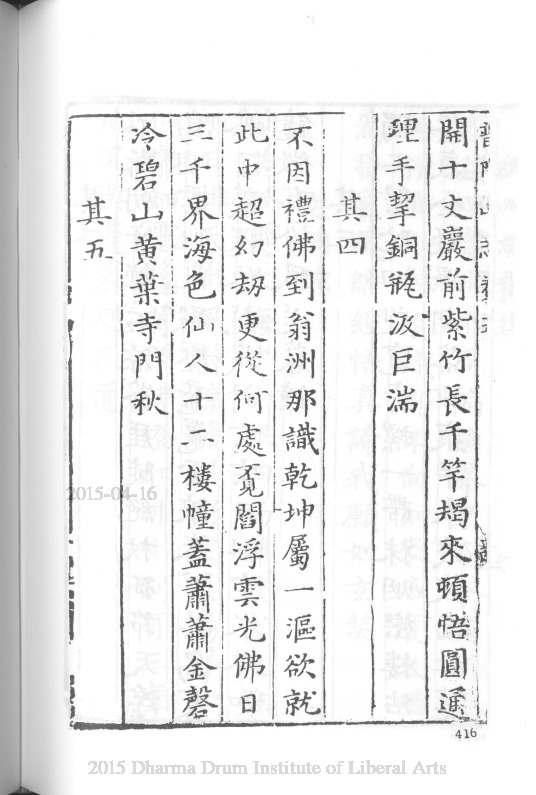 開十丈巖前紫竹長千竿朅來頓悟圓通
理手挈銅瓶汲巨湍
其四
不因禮佛到翁洲那識乾坤屬一漚欲就
此中超幻劫更從何處覓閻浮雲光佛日
三千界海色仙人十二樓幢蓋蕭蕭金磬
冷碧山黃葉寺門秋
其五
416
2015-04-16
2015 Dharma Drum Institute of Liberal Arts